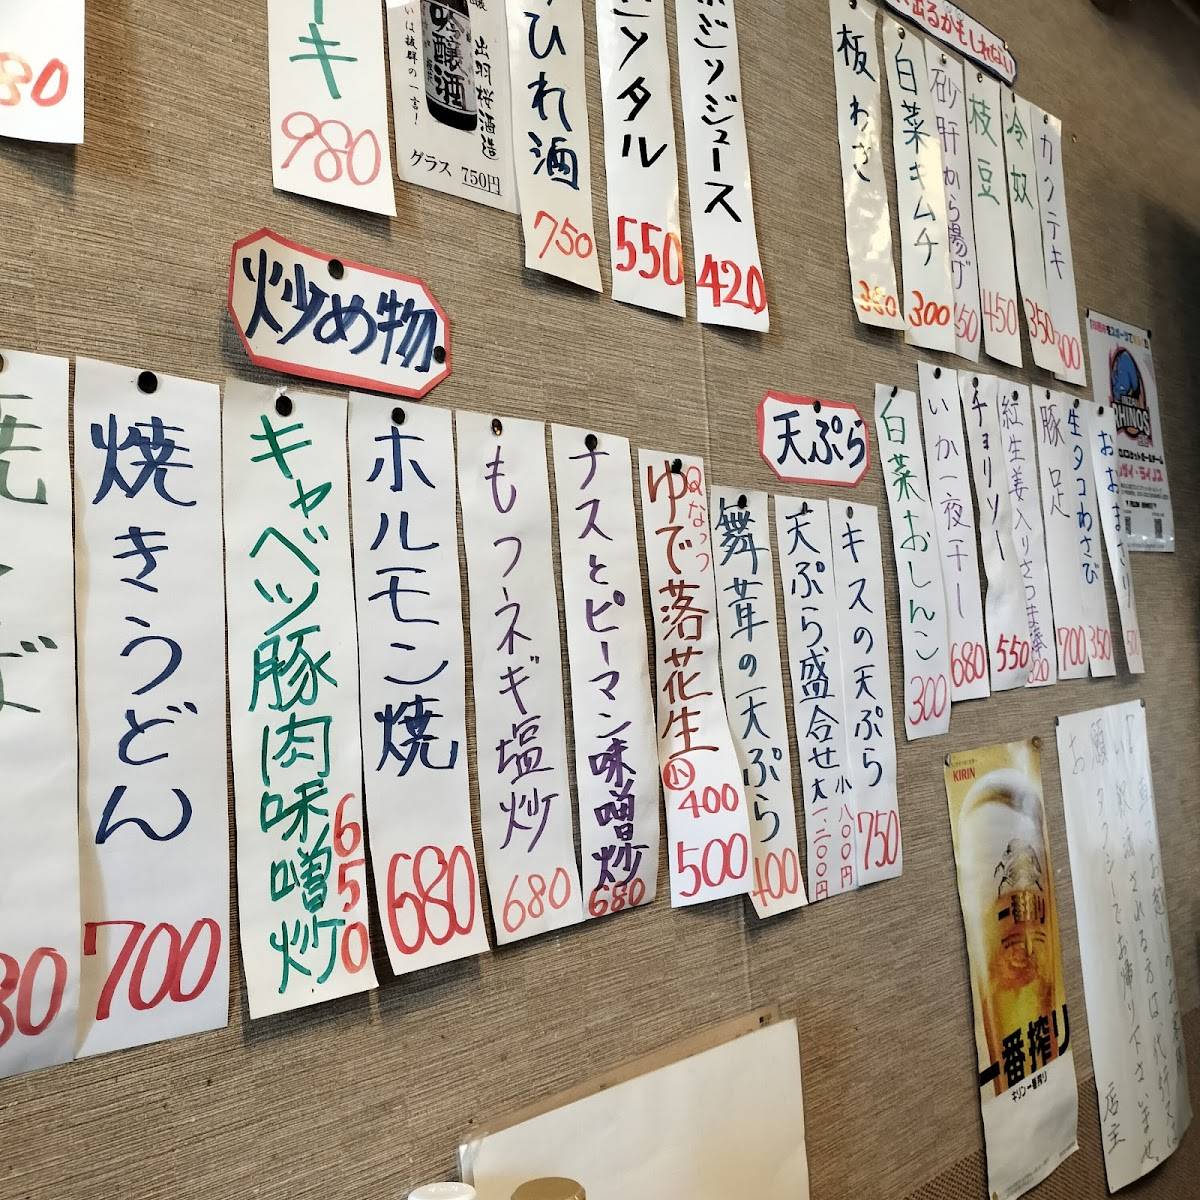 キ
980
吟醸酒
出羽桜酒造
いは抜群の一言!
グラス 750円
ひれ酒
750
ンタル
550
ポンジュース
420
出るかもしれない
板わさ
350
白菜キムチ
300
砂肝から揚げ
枝豆
450
冷奴
350
カクテキ
炒め物
焼きうどん
700
キャベツ豚肉味噌炒
650
ホルモン焼
680
もつネギ塩炒
680
ナスとピーマン味噌炒
680
Qなっつ
ゆで落花生
小 400
500
天ぷら
舞茸の天ぷら
400
天ぷら盛合せ
大 一、二〇〇円
小 八〇〇円
キスの天ぷら
750
白菜おしんこ
300
いか一夜干し
680
チョリソー
550
紅生姜入りさつま揚
豚足
700
生タコわさび
350
RHINOS
KIRIN
一番搾り
キリン一番搾り
お車でお越しのお客様
飲酒される方は代行又は
タクシーでお帰り下さいませ。
お願い
店主